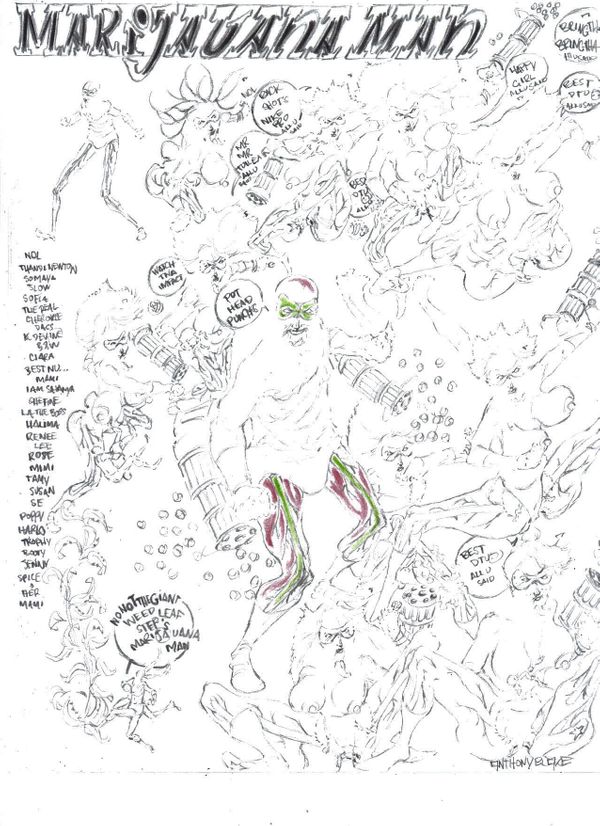 MARIJAUANA MAN
BRING THA
BRING THA
ALL U SAID
HAPPY
GIRL
ALL U SAID
BEST
DTUD
ALL U SAID
NOL
BACK
SHOTS
NIKE
PRO
ALL U
SAID
MR
MR
ALL U
BEST
DTUD
ALL U
WATCH
THA
IMPACT
POT
HEAD
PUNCHS
NOL
NEWTON
SOMAYA
SLOW
SOFIA
THE REAL
CHEROKIE
DACS
K. DEVINE
CIARA
BEST NU...
MAMI
I AM SAIAMA
SHE FINE
LA THE BOSS
HALIMA
RENEE
LEE
ROSE
MIMI
TAMY
SUSAN
SE
POPPY
HARLO
TROPHY
BOOTY
JENNY
SPICE
HER
MAMI
BEST
DTUD
ALL U
SAID
NO NOT THE GIANT
WEED LEAF
STEP'S
MARIJAUANA
MAN
ANTHONY BLAKE